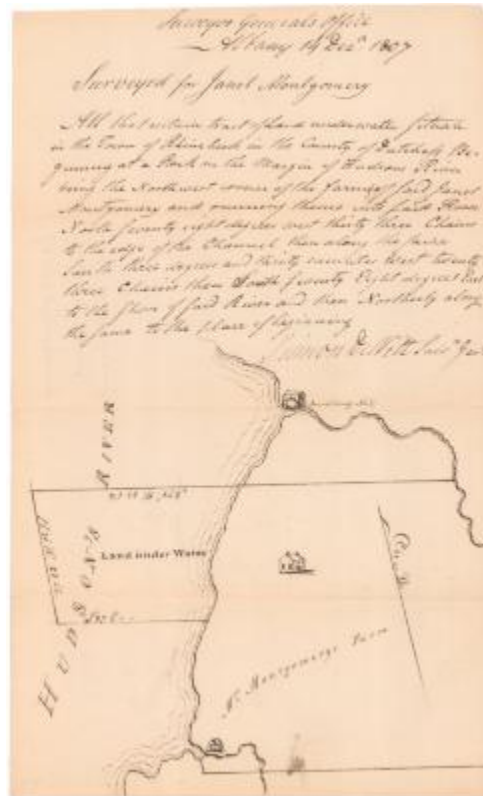 Surveyor Generals Office
Albany 14 Decr. 1807
Surveyed for Janet Montgomery
All that certain tract of Land underwater situate
in the Town of Rhinebeck in the County of Dutchess Be-
ginning at a Rock on the Margin of Hudsons River
being the Northwest corner of the farm of said Janet
Montgomery and running thence into said River
North seventy eight degrees west thirty three Chains
to the edge of the Channel then along the same
South three degrees and thirty minutes West twenty
three Chains then South seventy Eight degrees East
to the Shore of said River and then Northerly along
the same to the place of beginning
Simeon DeWitt Surr. Genl.
RIVER
Land under Water
HUDSON'S
Mrs. Montgomerys Farm